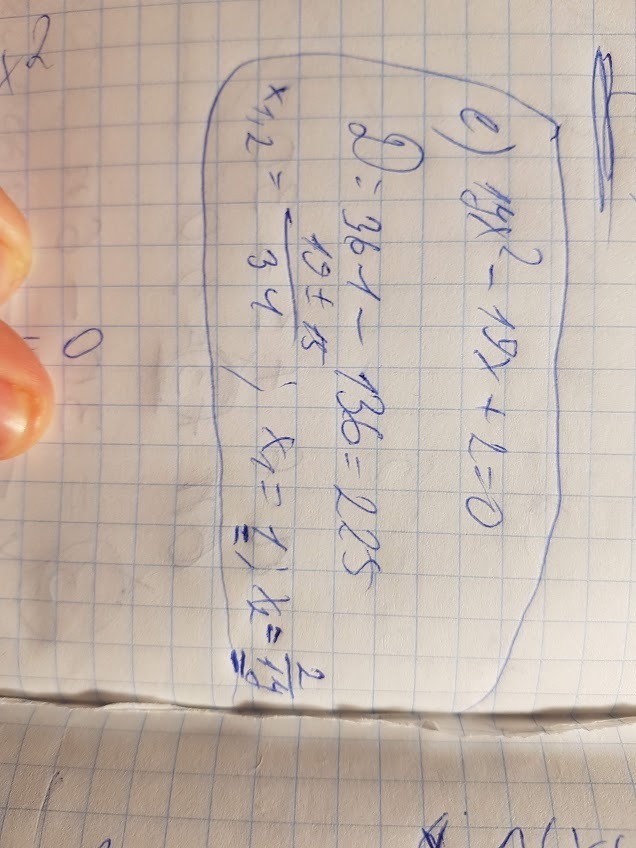 x²
e) 17x² - 19x + 2 = 0
D = 361 - 136 = 225
x₁,₂ = (19 ± 15)/34 ; x₁ = 1; x₂ = 2/17
0